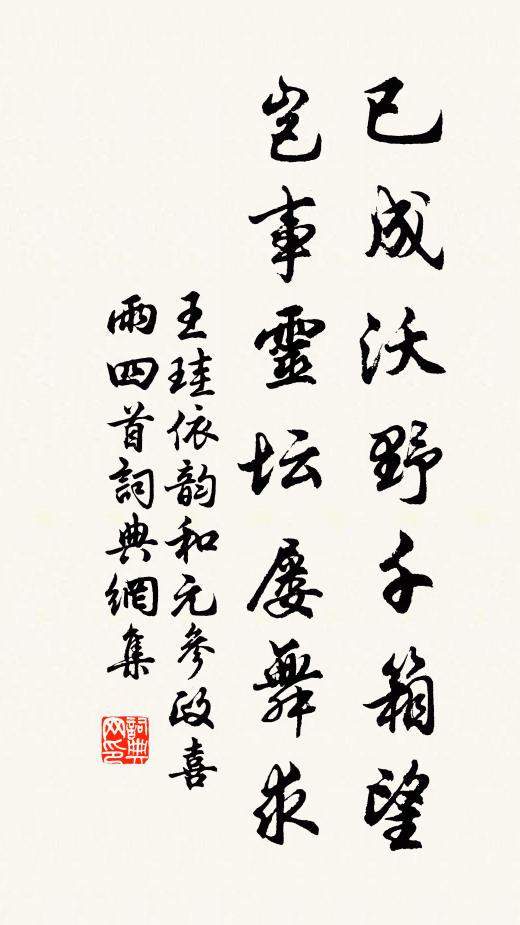 已成沃野千箱望
岂事靈坛屡舞求
王珪依韵和元参政喜
雨四首詞典網集
詞典
网印